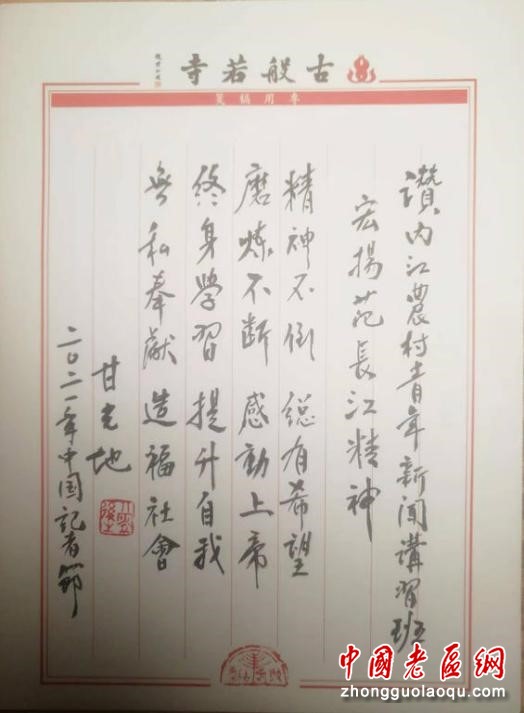 古般若寺
專用稿箋
讚内江農村青年新聞講習班
宏揚范長江精神
精神不倒 總有希望
磨煉不斷 感動上帝
終身學習 提升自我
無私奉献 造福社會
甘光地
二〇二一年中国記者節
中國老區網
zhongguolaoqu.com